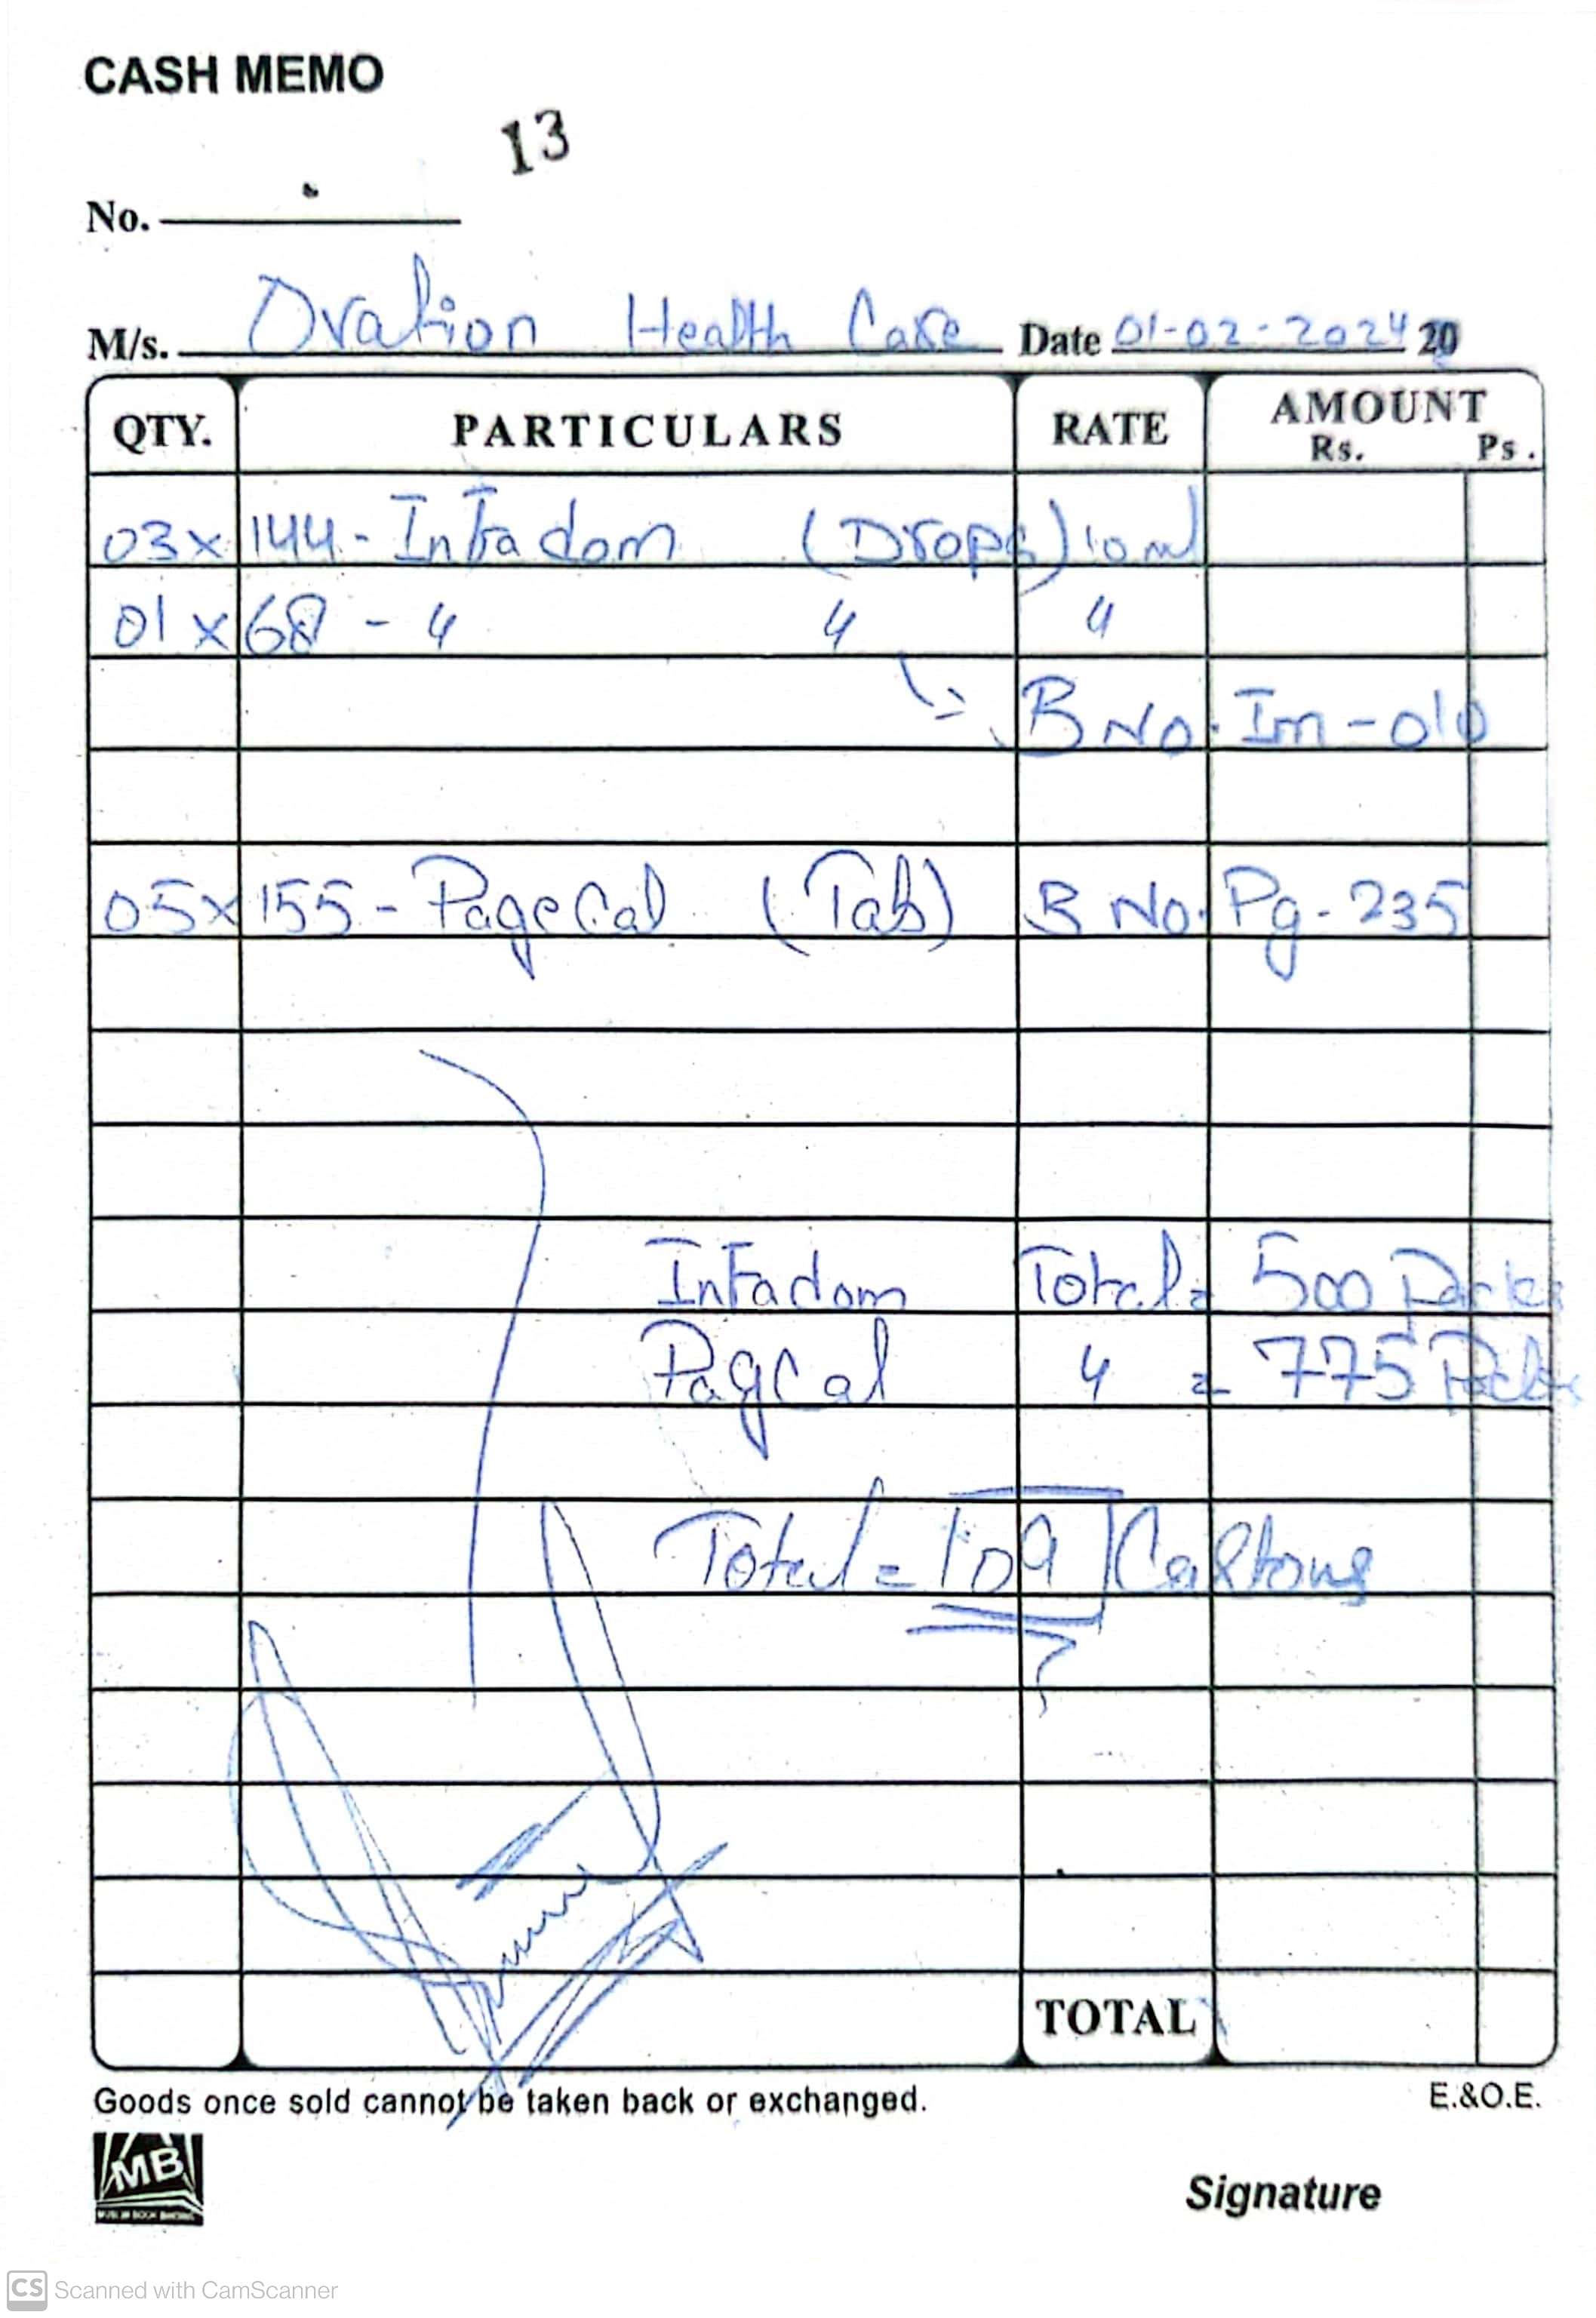 CASH MEMO
13
No.
M/s. Ovation Health Care Date 01-02-2024 20
QTY. PARTICULARS RATE AMOUNT
Rs. Ps.
03x 144 - Infadom (Drops) 10 ml
01 x 68 - 〃 〃 〃
B No. Im - 010
05x 155 - PageCal (Tab) B No. Pg - 235
Infadom Total = 500 Packs
PagCal 〃 = 775 Packs
Total = 109 Cartons
TOTAL
Goods once sold cannot be taken back or exchanged. E.&O.E.
MB
Signature
CS Scanned with CamScanner